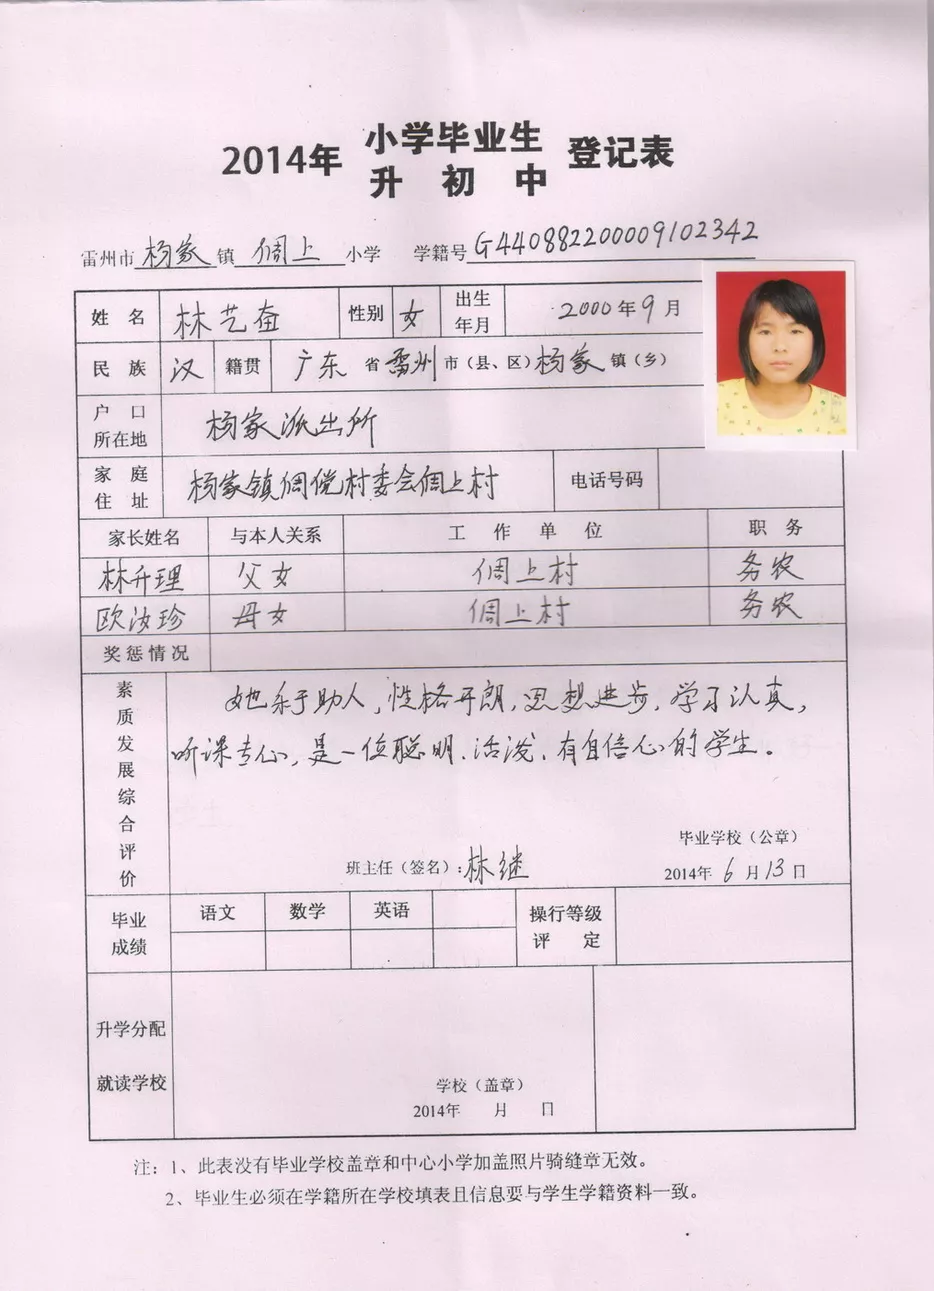 2014年 小学毕业生 登记表
升 初 中
雷州市 杨家 镇 倜上 小学 学籍号 G440882200009102342
姓 名 林艺奋 性别 女 出生年月 2000年9月
民 族 汉 籍贯 广东 省 雷州 市(县、区) 杨家 镇(乡)
户 口 所在地 杨家派出所
家 庭 住 址 杨家镇倜傥村委会倜上村 电话号码
家长姓名 与本人关系 工 作 单 位 职 务
林升理 父女 倜上村 务农
欧汝珍 母女 倜上村 务农
奖惩情况
素质发展综合评价
她乐于助人,性格开朗,思想进步,学习认真,
听课专心,是一位聪明、活泼、有自信心的学生。
毕业学校(公章)
班主任(签名): 林继 2014年 6 月 13 日
毕业成绩 语文 数学 英语 操行等级评 定
升学分配
就读学校
学校(盖章)
2014年 月 日
注:1、此表没有毕业学校盖章和中心小学加盖照片骑缝章无效。
2、毕业生必须在学籍所在学校填表且信息要与学生学籍资料一致。